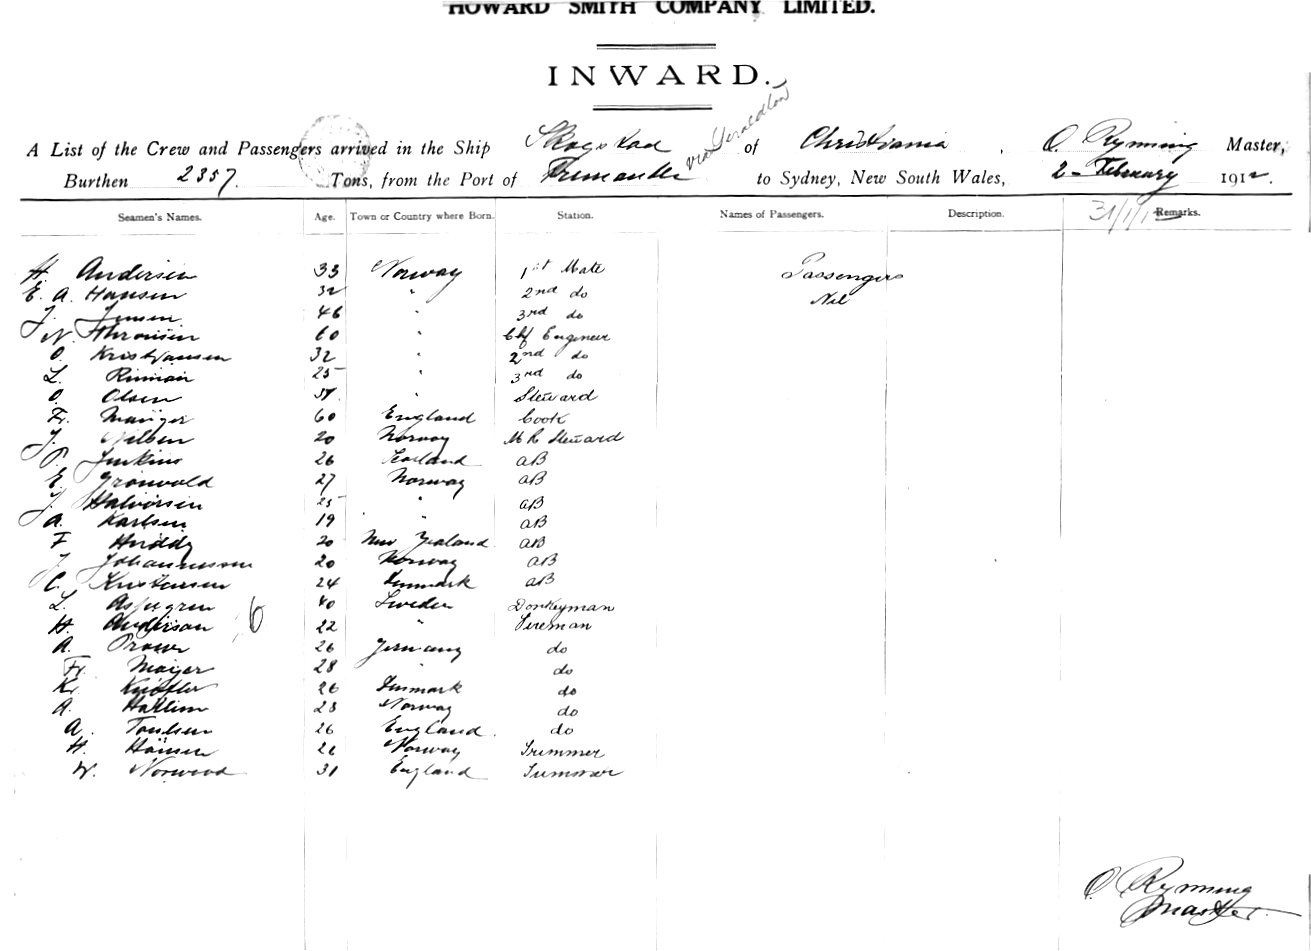 HOWARD SMITH COMPANY LIMITED.
INWARD.
A List of the Crew and Passengers arrived in the Ship Skogstad of Christiania, O. Rynning Master,
via Geraldton
Burthen 2357 Tons, from the Port of Fremantle to Sydney, New South Wales, 2 February 1912.
Seamen's Names. Age. Town or Country where Born. Station. Names of Passengers. Description. Remarks.
31/1/1
H. Andersen 33 Norway 1st Mate Passengers
E. A. Hansen 32 " 2nd do Nil
J. Jensen 46 " 3rd do
N. Thronsen 60 " Chf Engineer
O. Kristiansen 32 " 2nd do
L. 25 " 3rd do
O. Olsen " Steward
Fr. 60 England Cook
J. 20 Norway M R Steward
P. Jenkins 26 Scotland AB
E. Gronvold 27 Norway AB
J. Halvorsen 25 " AB
A. Karlsen 19 " " AB
F Huddy 20 New Zealand AB
J. Johannessen 20 Norway AB
C. Kristensen 24 Denmark AB
L. Aspegren 40 Sweden Donkeyman
H. Anderson 6 22 " Fireman
A. 26 Germany do
Fr. Meijer 28 " do
Kr. 26 Denmark do
A. 23 Norway do
A. 26 England. do
H. Hansen Norway Trimmer
W. Norwood 31 England Trimmer
O Rynning
Master.